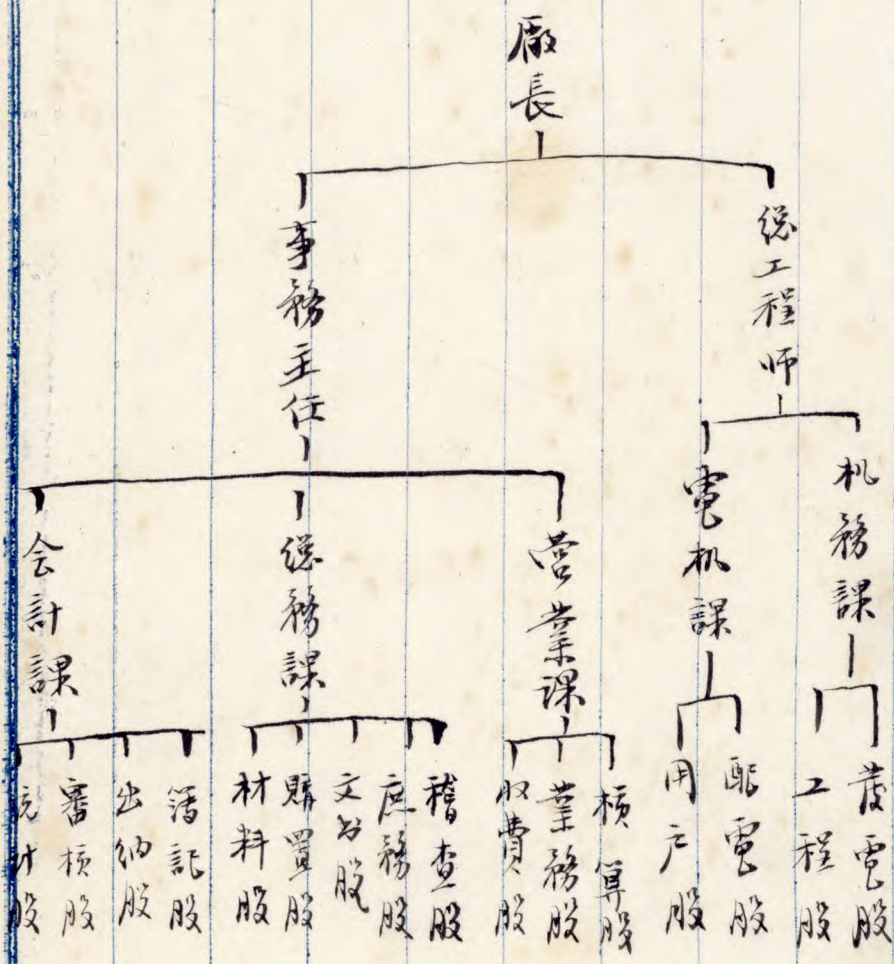 廠長
総工程师
事務主任
机務課
電机課
营業课
総務課
会計課
發電股
工程股
配電股
用户股
核算股
業務股
收費股
稽查股
庶務股
文书股
購置股
材料股
簿記股
出纳股
審核股
統計股